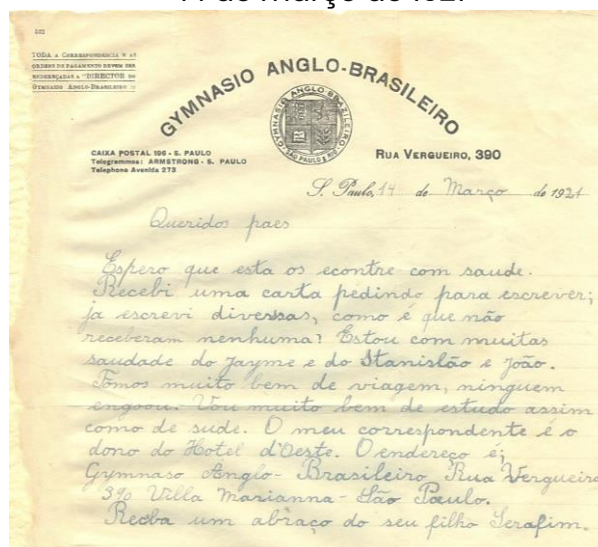 14 de março de 1921
102
TODA A CORRESPONDENCIA E AS
ORDENS DE PAGAMENTO DEVEM SER
ENDEREÇADAS A "DIRECTOR DO
GYMNASIO ANGLO-BRASILEIRO
GYMNASIO ANGLO-BRASILEIRO
GYMNASIO ANGLO BRAZILEIRO
SÃO PAULO & RIO
CAIXA POSTAL 196 - S. PAULO
Telegrammas: ARMSTRONG - S. PAULO
Telephone Avenida 273
RUA VERGUEIRO, 390
S. Paulo, 14 de Março de 1921
Queridos paes
Espero que esta os econtre com saude.
Recebi uma carta pedindo para escrever;
ja escrevi diversas, como é que não
receberam nenhuma? Estou com muitas
saudade do Jayme e do Stanislão e João.
Fomos muito bem de viagem, ninguem
engoou. Vou muito bem de estudo assim
como de sude. O meu correspondente é o
dono do Hotel d'Oeste. O endereço é;
Gymnaso Anglo-Brasileiro Rua Vergueiro
390 Villa Marianna - São Paulo.
Receba um abraço do seu filho Serafim.